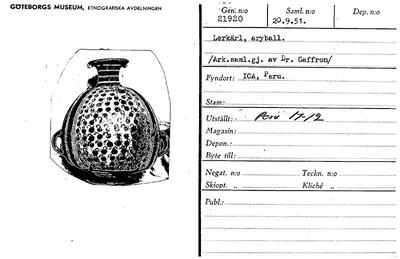 GÖTEBORGS MUSEUM, ETNOGRAFISKA AVDELNINGEN
Gen. n:o
21920
Saml. n:o
20.9.51.
Dep. n:o
Lerkärl, aryball.
/Ark.saml.gj. av Dr. Gaffron/
Fyndort: ICA, Peru.
Stam:
Utställt: Perú 17-12
Magasin:
Depon.:
Byte till:
Negat. n:o Teckn. n:o
Skiopt. „ Kliché „
Publ.: